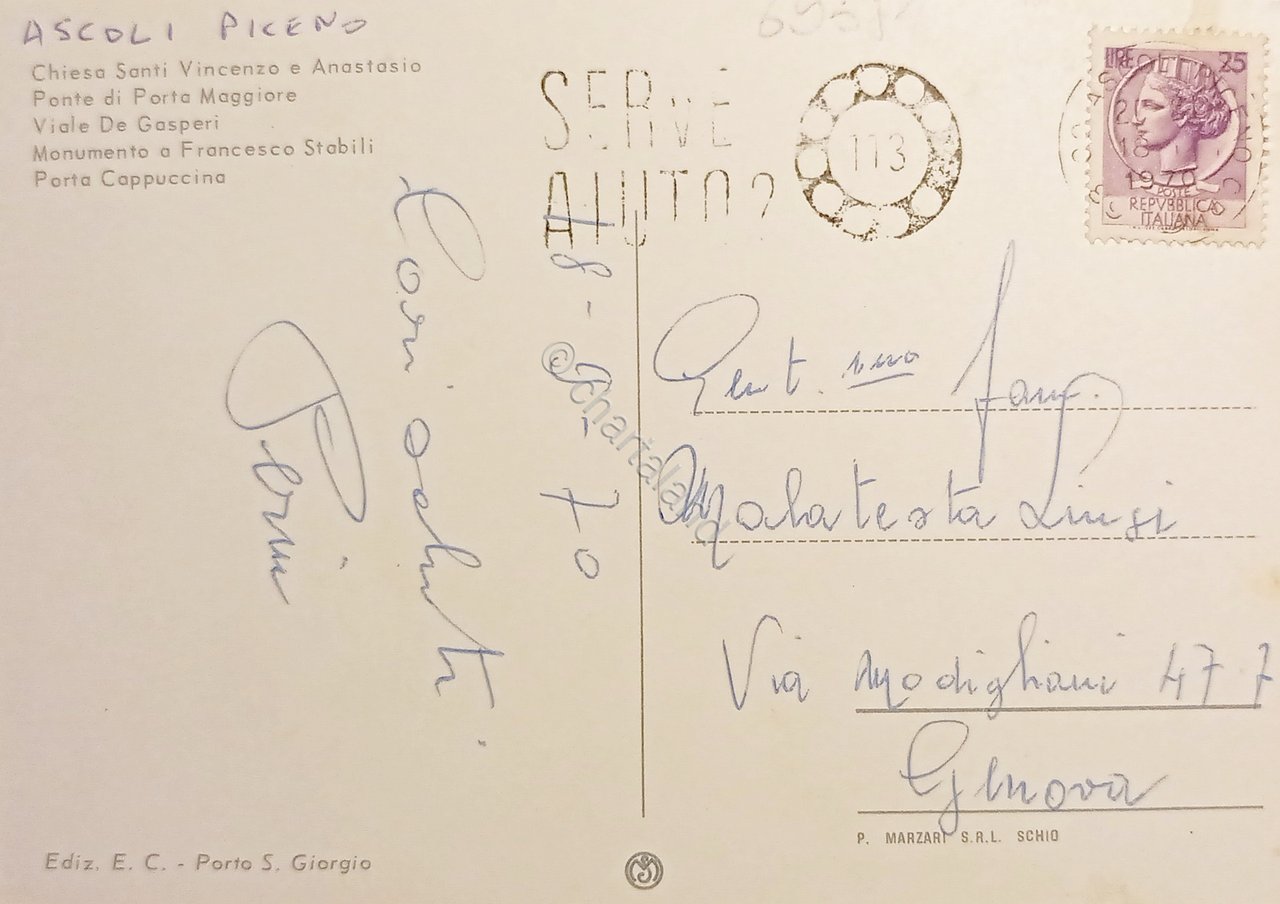 ASCOLI PICENO
Chiesa Santi Vincenzo e Anastasio
Ponte di Porta Maggiore
Viale De Gasperi
Monumento a Francesco Stabili
Porta Cappuccina
SERVE
AIUTO?
113
LIRE 25
1970
POSTE
REPVBBLICA
ITALIANA
Cari saluti
70
©chartaland
Gent.imo fam.
Malatesta Luigi
Via Modigliani 47 7
Genova
P. MARZARI S.R.L. SCHIO
Ediz. E. C. - Porto S. Giorgio